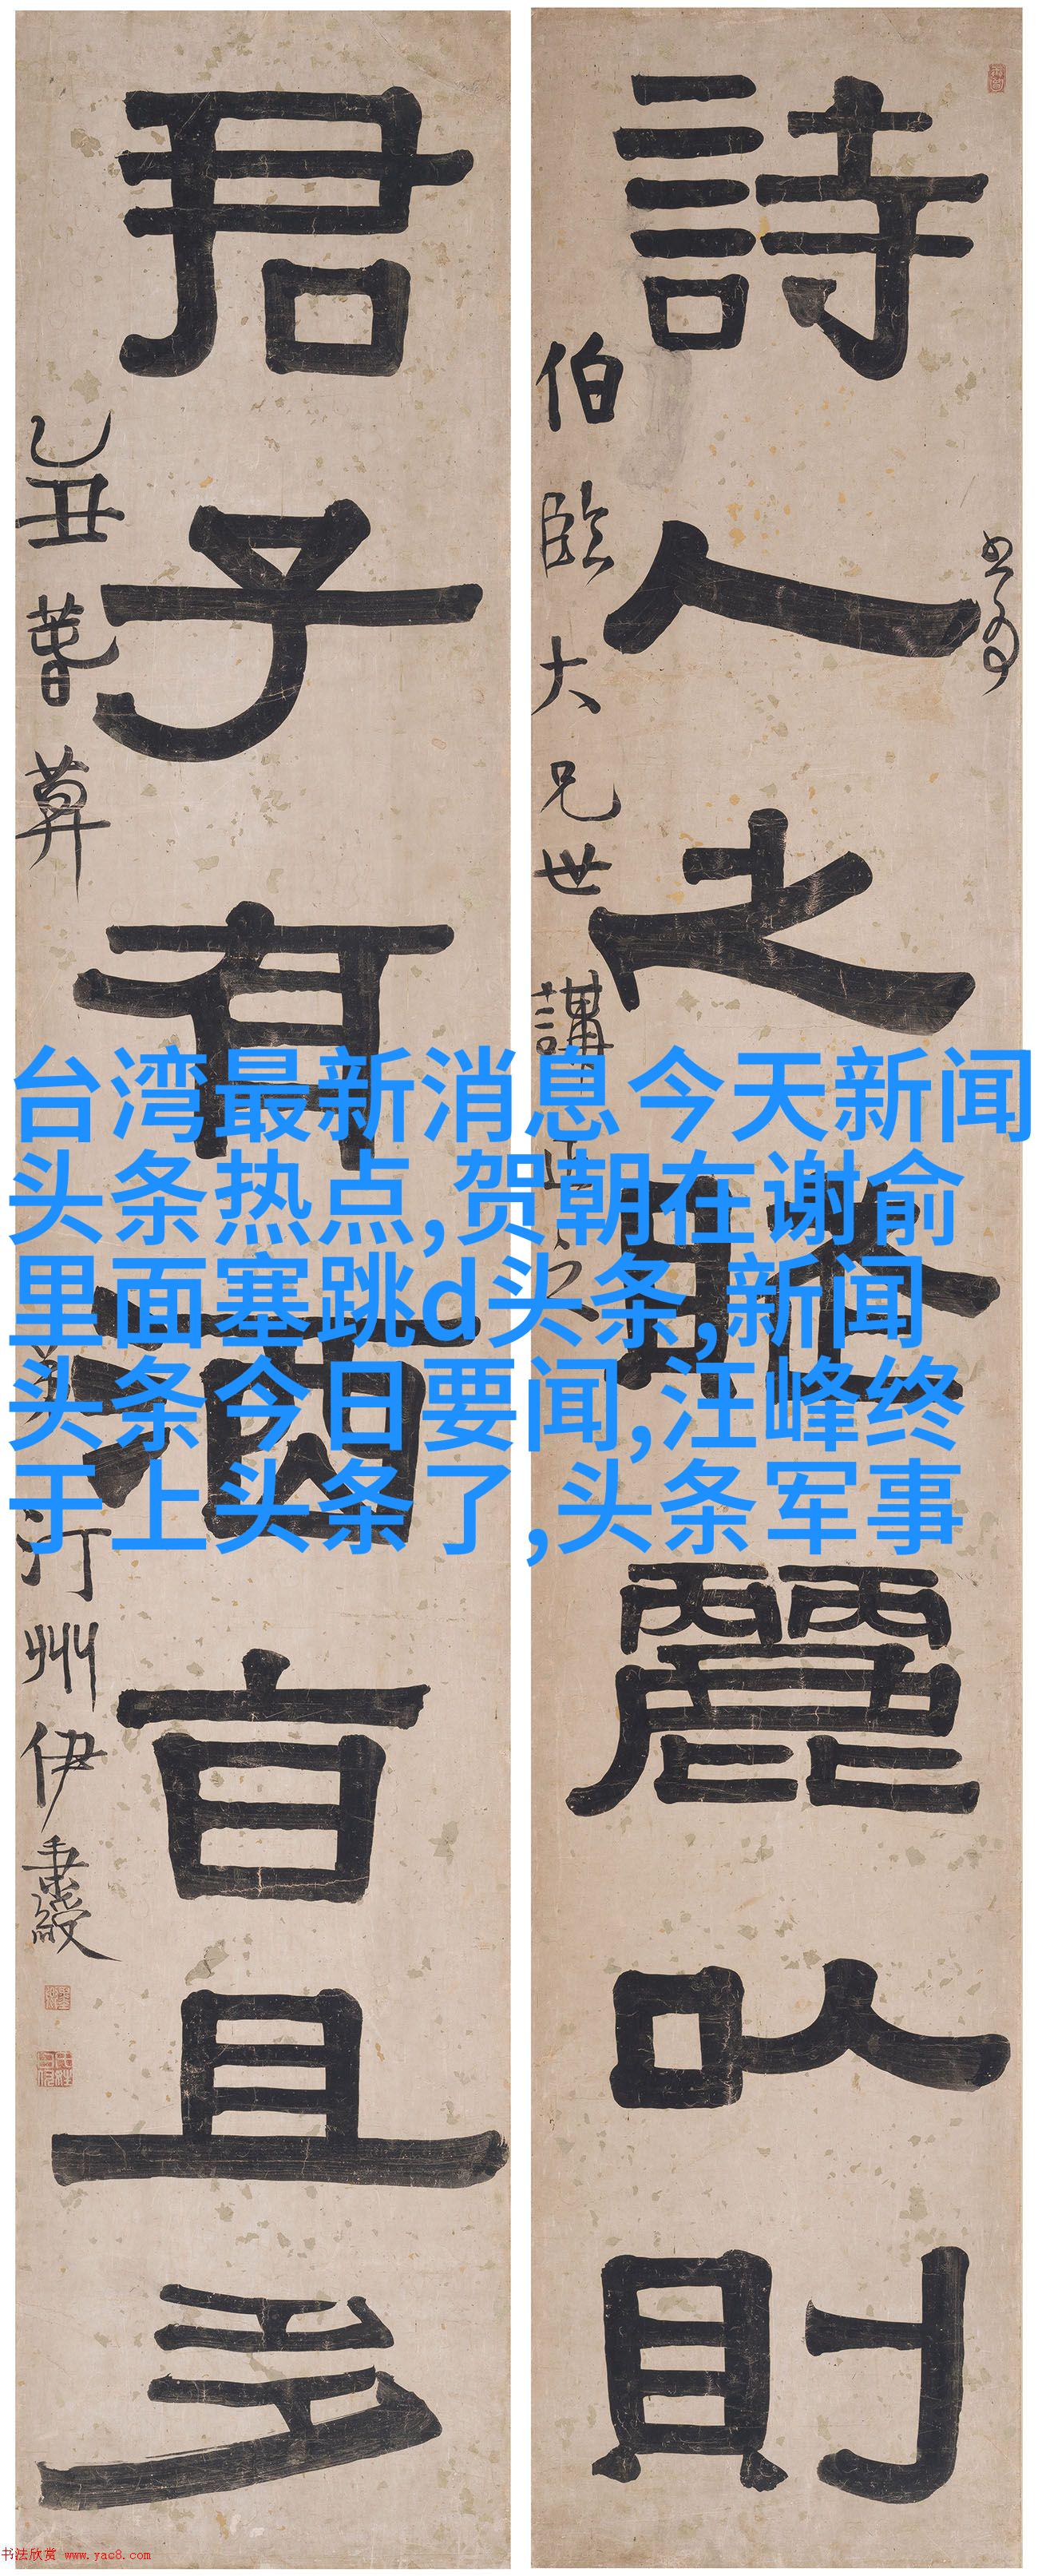 詩人之麗以則
伯臨大兄世講正之
君子有酒旨且多
乙丑
汀州伊秉綬
台湾最新消息今天新闻
头条热点,贺朝在谢俞
里面塞跳d头条,新闻
头条今日要闻,汪峰终
于上头条了,头条军事
书法欣赏 www.yac8.com